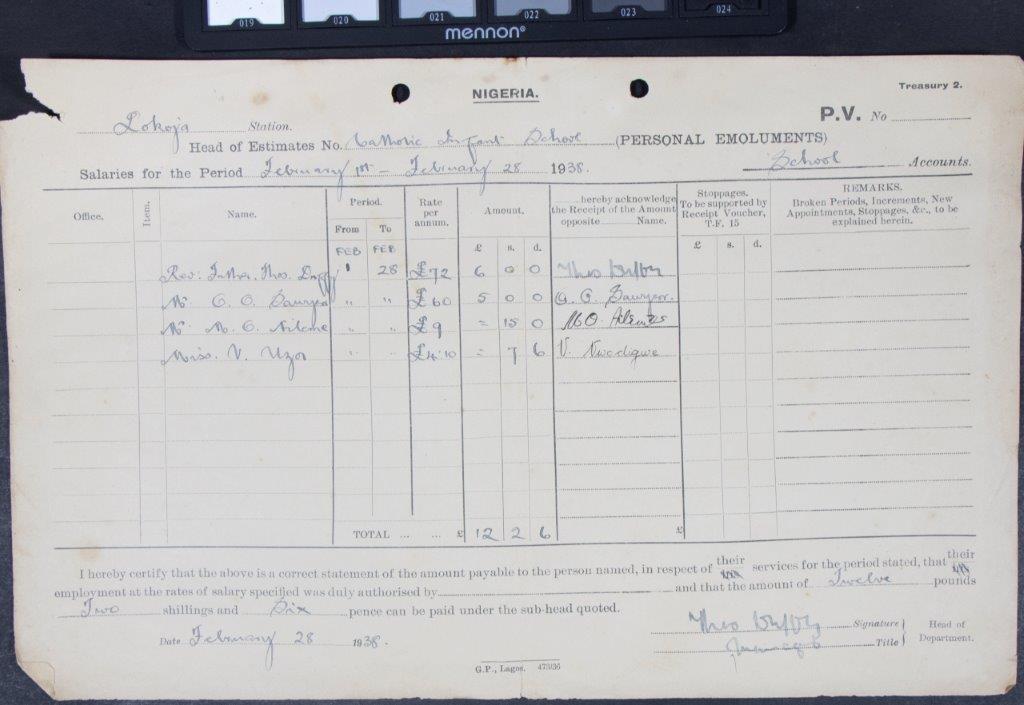 019 020 021 022 023 024
mennon®
NIGERIA.
Treasury 2.
P.V. No
Lokoja Station.
Head of Estimates No. Catholic Infant School (PERSONAL EMOLUMENTS)
Salaries for the Period February 1st – February 28 1938. School Accounts.
Office. Item. Name. Period. From To Rate per annum. Amount. £ s. d. hereby acknowledge the Receipt of the Amount opposite Name. Stoppages. To be supported by Receipt Voucher, T.F. 15 £ s. d. REMARKS. Broken Periods, Increments, New Appointments, Stoppages, &c., to be explained herein.
FEB FEB
Rev: Father Thos. Duffy 1 28 £72 6 0 0 Theo Duffy
Mr O. O. Sawyerr " " £60 5 0 0 O. O. Sawyerr.
Mr M. O. " " £9 = 15 0 M O.
Miss. V. Uzor " " £4.10 = 7 6 V. Nwodigwe
TOTAL ... ... £ 12 2 6 £
I hereby certify that the above is a correct statement of the amount payable to the person named, in respect of their services for the period stated, that their
employment at the rates of salary specified was duly authorised by and that the amount of Twelve pounds
Two shillings and Six pence can be paid under the sub-head quoted.
Date February 28 1938. Theo Duffy Signature Head of Department.
Title
G.P., Lagos. 473/36